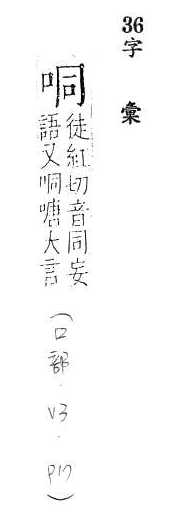 36字彙
哃
徒紅切音同妄
語又哃嘡大言
(口部.V3.P17)